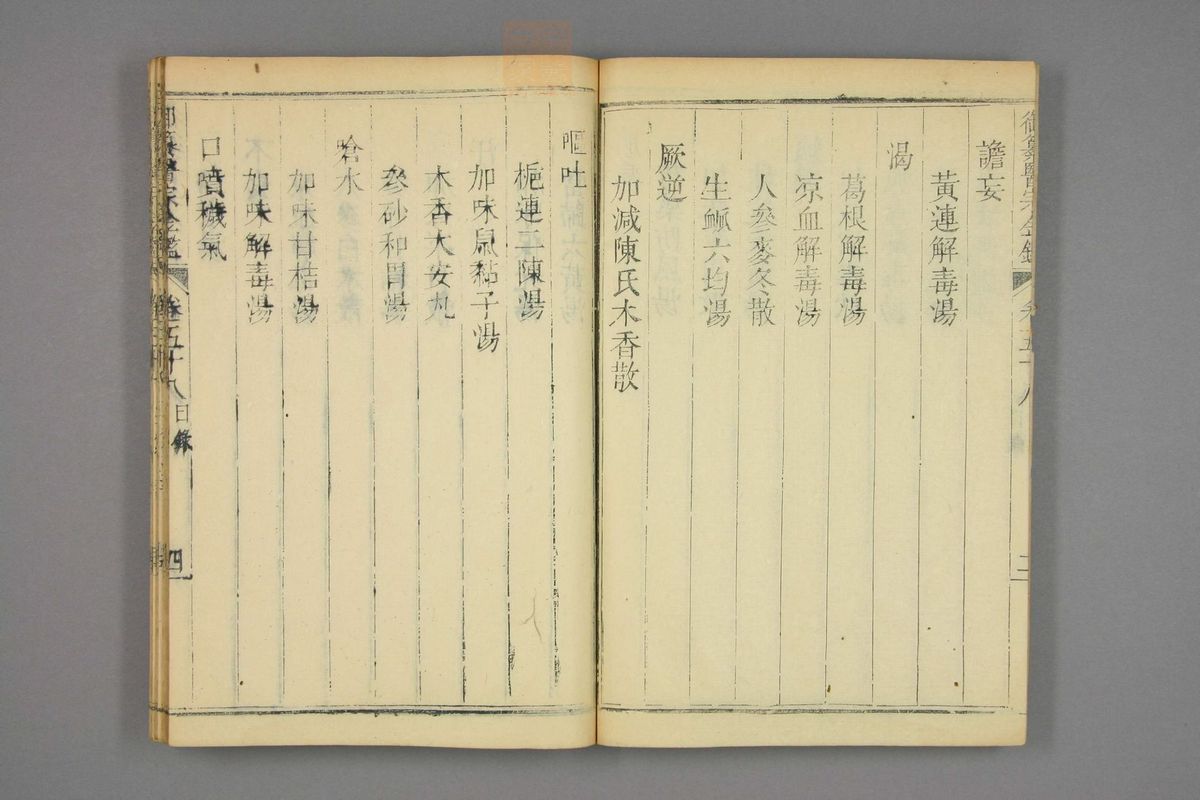 譫妄
黃連解毒湯
渴
葛根解毒湯
凉血解毒湯
人參麥冬散
生脈六均湯
厥逆
加減陳氏木香散
嘔吐
梔連二陳湯
加味鼠黏子湯
木香大安丸
參砂和胃湯
嗆水
加味甘桔湯
加味解毒湯
口噴穢氣
御纂醫宗金鑑
卷五十八
目錄
四